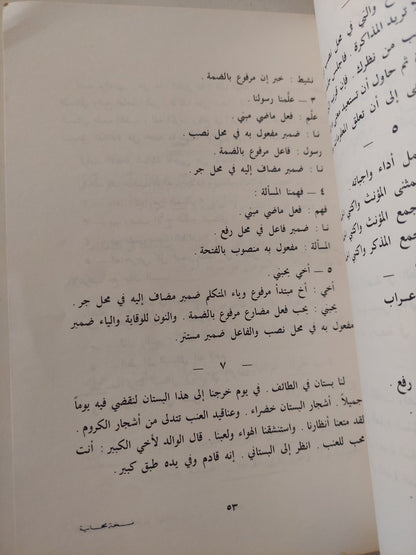 نشيط : خبر إن مرفوع بالضمة .
٣ — علّمنا رسولنا .
علّم : فعل ماضي مبني .
نـا : ضمير مفعول به في محل نصب .
رسول : فاعل مرفوع بالضمة .
نـا : ضمير مضاف إليه في محل جر .
٤ — فهمنا المسألة :
فهم : فعل ماضي مبني .
نـا : ضمير فاعل في محل رفع .
المسألة : مفعول به منصوب بالفتحة .
٥ — أخي يحبني .
أخي : أخ مبتدأ مرفوع وياء المتكلم ضمير مضاف إليه في محل جر .
يحبني : يحب فعل مضارع مرفوع بالضمة . والنون للوقاية والياء ضمير
مفعول به في محل نصب والفاعل ضمير مستتر .
— ٧ —
لنا بستان في الطائف . في يوم خرجنا إلى هذا البستان لنقضي فيه يوماً
جميلاً . أشجار البستان خضراء . وعناقيد العنب تتدلى من أشجار الكروم .
لقد متعنا أنظارنا . واستنشقنا الهواء ولعبنا . قال الوالد لأخي الكبير : أنت
محب للعنب . انظر إلى البستاني . إنه قادم وفي يده طبق كبير .
٥٣
والتي في محل
تريد المذاكرة
من نظرك .
ثم حاول أن تستعيد
إلى أن تعلق
٥
أداء واجباته
المؤنث واكتبي
جمع المؤنث واكتبي
جمع المذكر واكتبي
رفع .